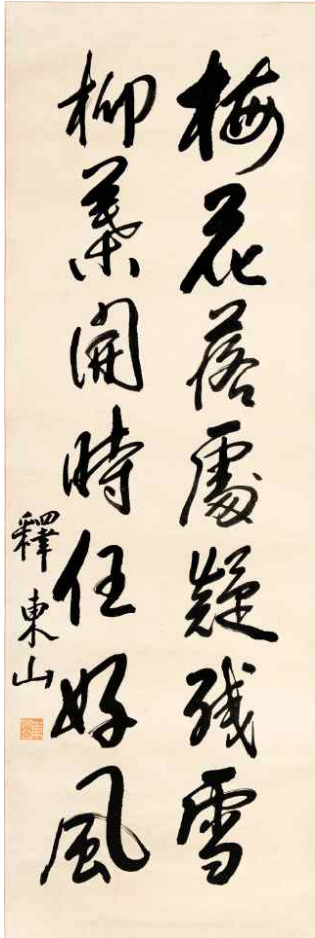 梅花落處疑殘雪
柳葉開時任好風
釋東山